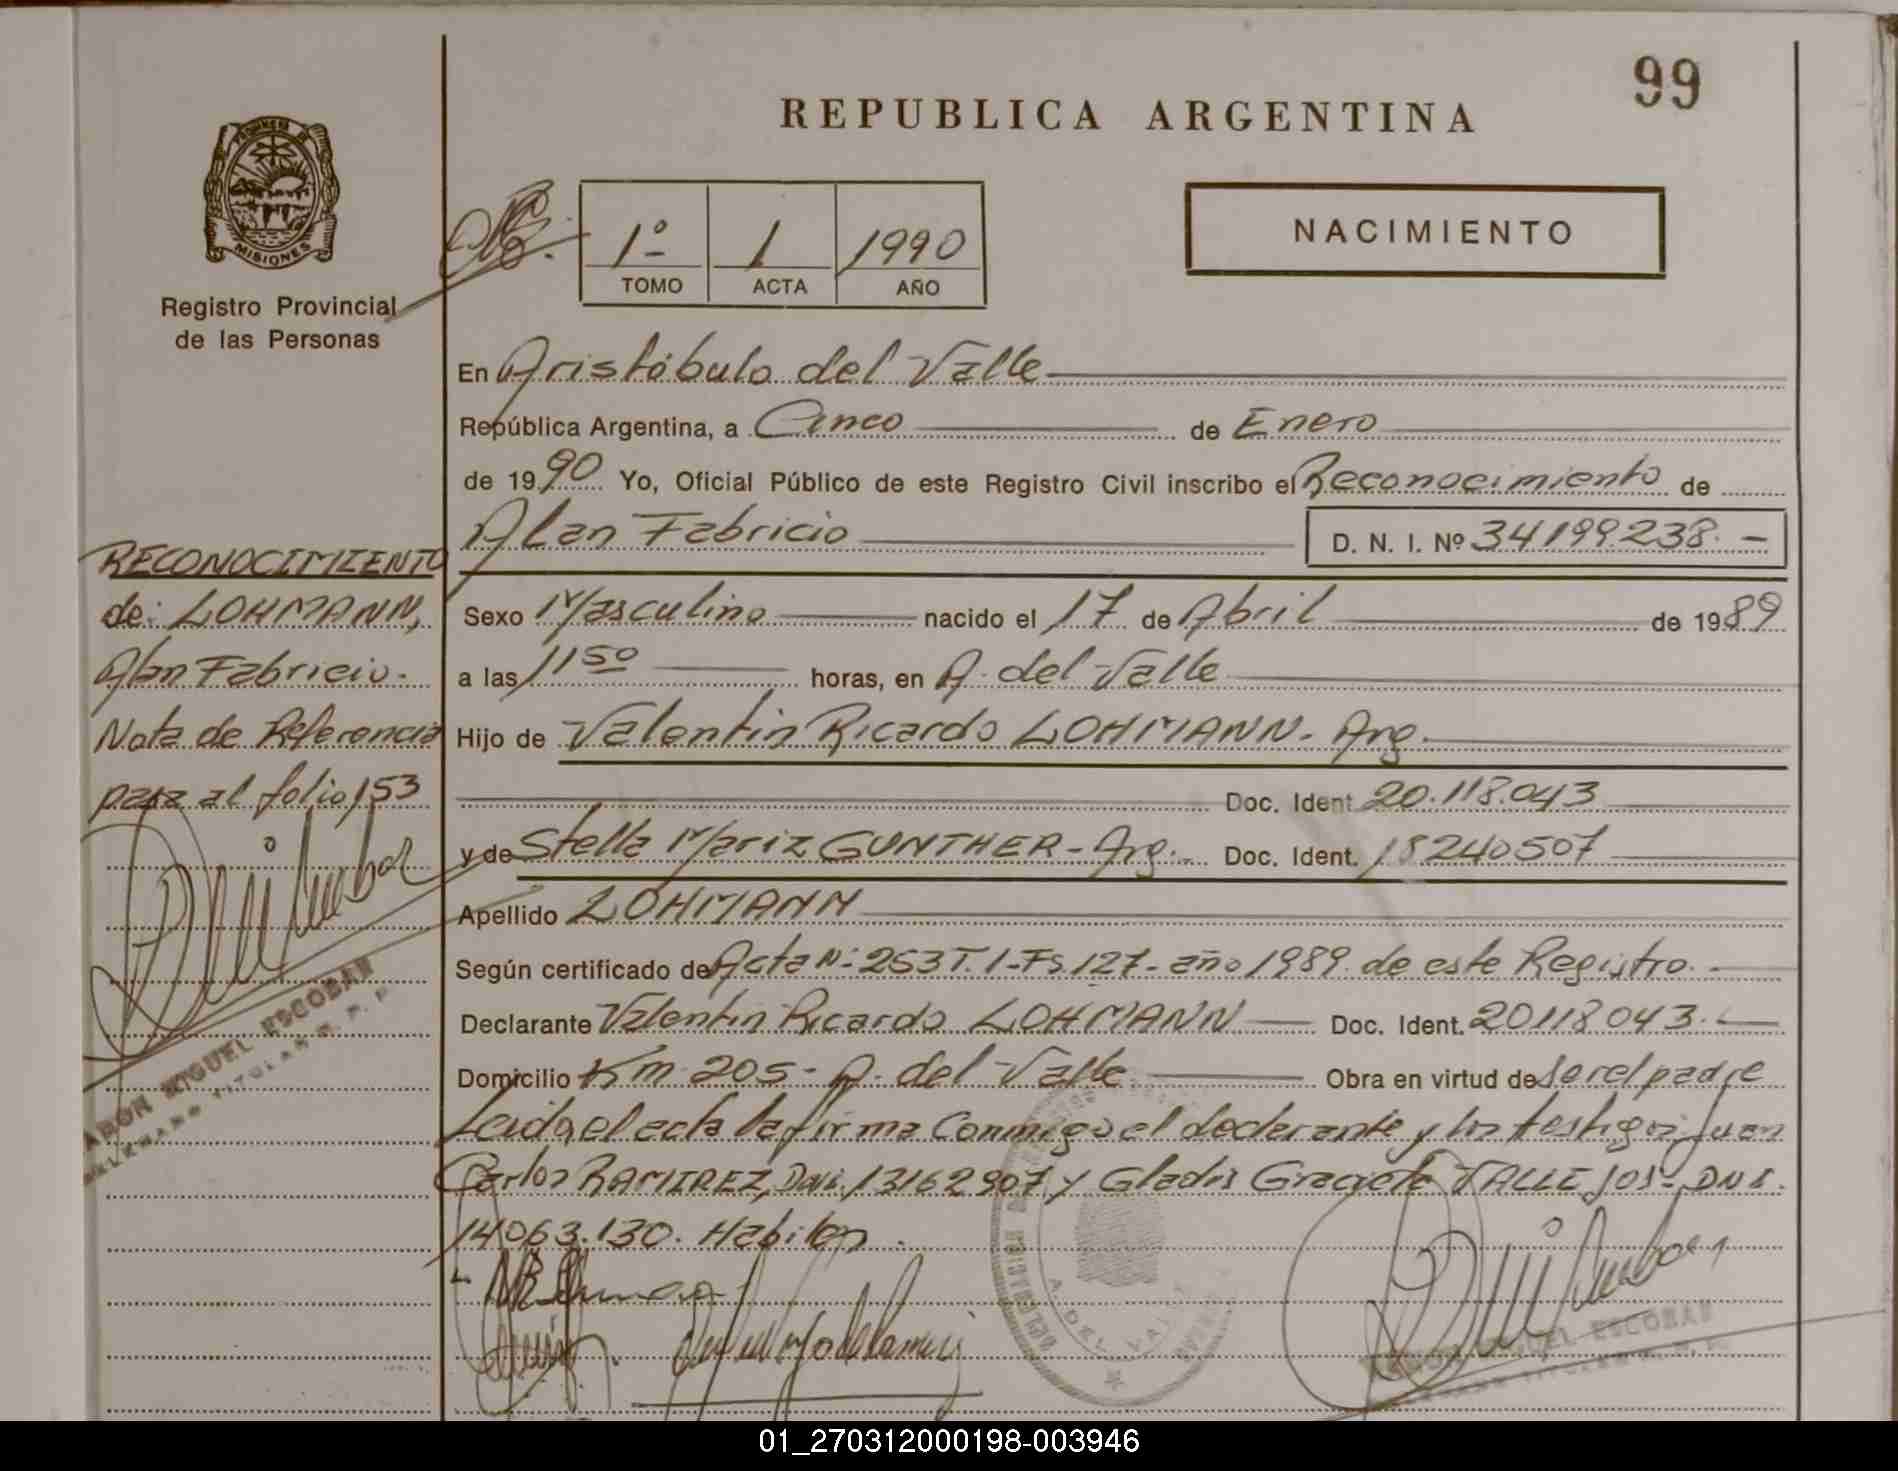 99
REPUBLICA ARGENTINA
NACIMIENTO
1º 1 1990
TOMO ACTA AÑO
MISIONES
Registro Provincial
de las Personas
En Aristóbulo del Valle
República Argentina, a Cinco de Enero
de 1990 Yo, Oficial Público de este Registro Civil inscribo el Reconocimiento de
Alan Fabricio D. N. I. Nº 34199238.-
Sexo Masculino nacido el 17 de Abril de 1989
a las 11 50 horas, en A. del Valle
Hijo de Valentin Ricardo LOHMANN. Arg.
Doc. Ident. 20.118.043
y de Stella Mariz GUNTHER - Arg. Doc. Ident. 18240507
Apellido LOHMANN
Según certificado de Acta Nº 253 T. 1-Fs 127- año 1989 de este Registro.
Declarante Valentin Ricardo LOHMANN Doc. Ident. 20118043.
Domicilio Km 205- A. del Valle Obra en virtud de ser el padre
Leida el acta la firma conmigo el declarante y los testigos: Juan
Carlos RAMIREZ, Dni. 13162907 y Gladis Graciela VALLEJOS- DNI.
14063.130. Habiles.
RECONOCIMIENTO
de: LOHMANN,
Alan Fabricio.
Nota de Referencia
pasa al folio 153
MIGUEL ESCOBAR
A. DEL VALLE
MIGUEL ESCOBAR
01_270312000198-003946